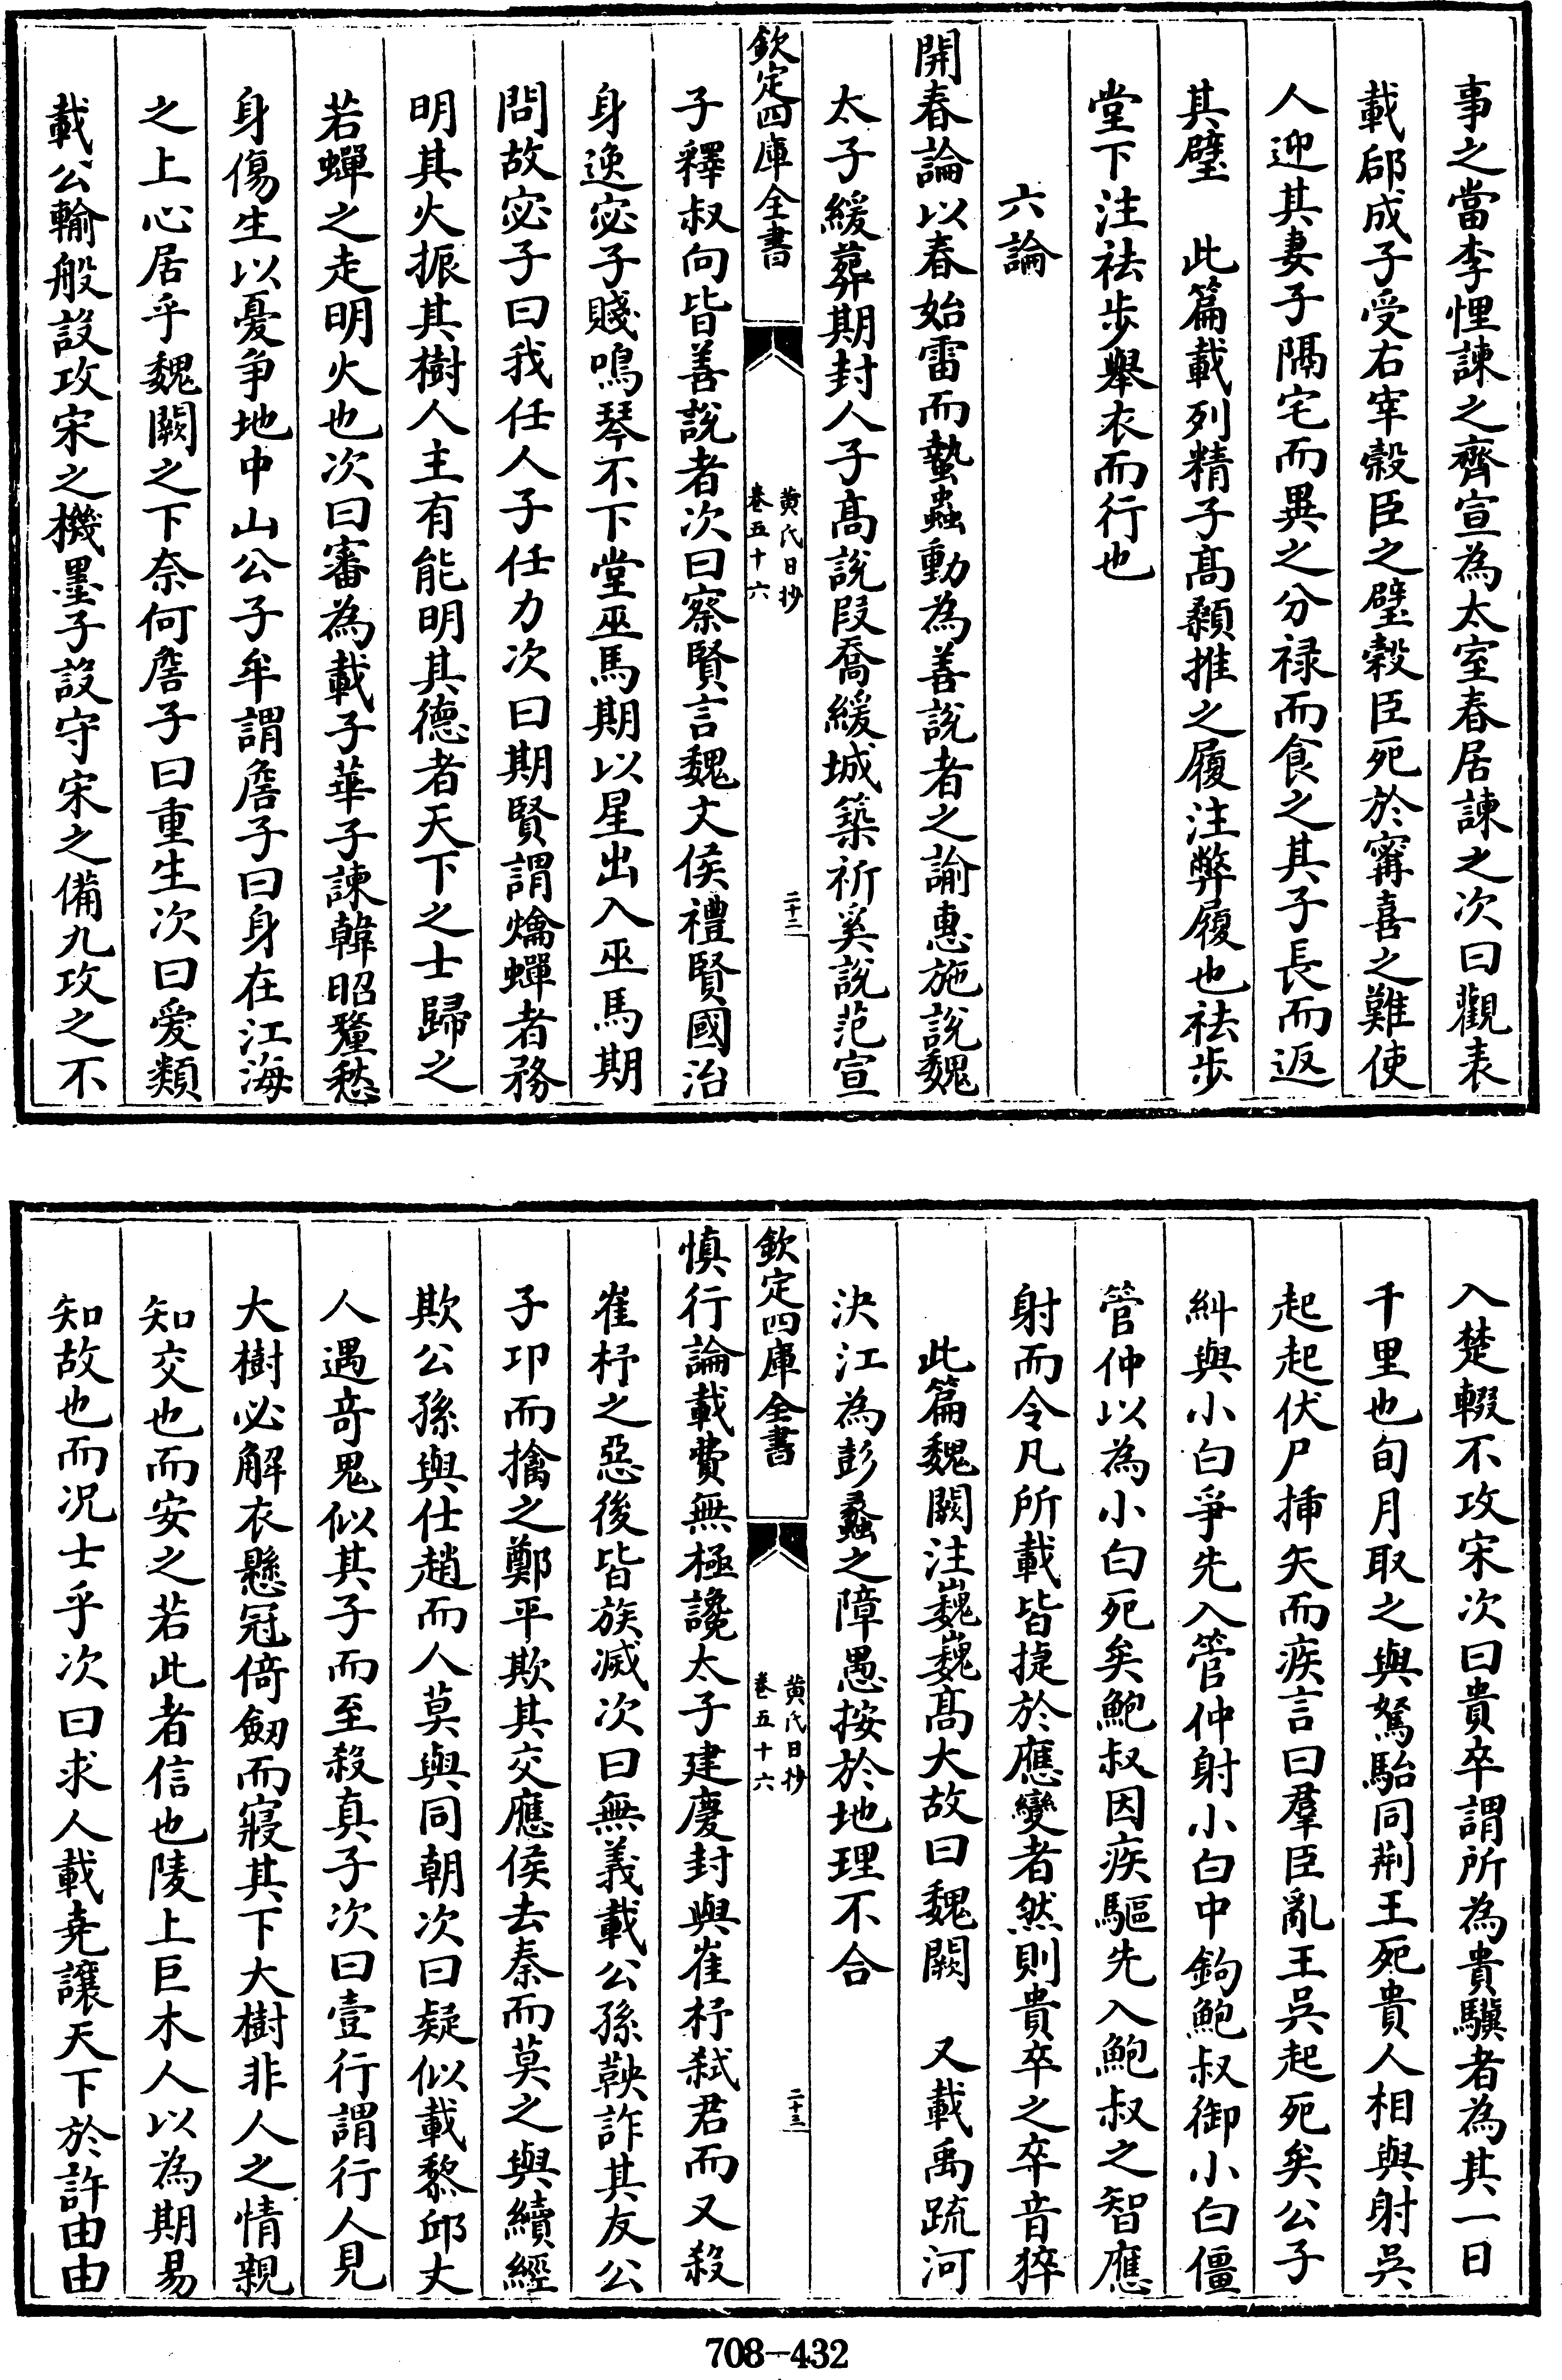 事之當李悝諫之齊宣為太室春居諫之次曰觀表
載郈成子受右宰穀臣之璧穀臣死於甯喜之難使
人迎其妻子隔宅而異之分禄而食之其子長而返
其璧　此篇載列精子髙顙推之履注弊履也袪步
堂下注袪步舉衣而行也
六論
開春論以春始雷而蟄蟲動為善說者之諭惠施說魏
太子緩葬期封人子髙說段喬緩城築祈奚說范宣
欽定四庫全書
黄氏日抄
卷五十六
二十二
子釋叔向皆善說者次曰察賢言魏文侯禮賢國治
身逸宓子賤鳴琴不下堂巫馬期以星出入巫馬期
問故宓子曰我任人子任力次曰期賢謂爚蟬者務
明其火振其樹人主有能明其德者天下之士歸之
若蟬之走明火也次曰審為載子華子諫韓昭釐愁
身傷生以憂争地中山公子牟謂詹子曰身在江海
之上心居乎魏闕之下奈何詹子曰重生次曰愛類
載公輸般設攻宋之機墨子設守宋之備九攻之不
入楚輟不攻宋次曰貴卒謂所為貴驥者為其一日
千里也旬月取之與駑駘同荆王死貴人相與射吳
起起伏尸揷矢而疾言曰羣臣亂王吳起死矣公子
糾與小白爭先入管仲射小白中鉤鮑叔御小白僵
管仲以為小白死矣鮑叔因疾驅先入鮑叔之智應
射而令凡所載皆捷於應變者然則貴卒之卒音猝
此篇魏闕注巍巍髙大故曰魏闕　又載禹疏河
決江為彭蠡之障愚按於地理不合
欽定四庫全書
黄氏日抄
卷五十六
二十三
慎行論載費無極讒太子建慶封與崔杼弑君而又殺
崔杼之惡後皆族滅次曰無義載公孫鞅詐其友公
子卬而擒之鄭平欺其交應侯去秦而莫之與續經
欺公孫與仕趙而人莫與同朝次曰疑似載黎邱丈
人遇竒鬼似其子而至殺真子次曰壹行謂行人見
大樹必解衣懸冠倚劒而寢其下大樹非人之情親
知交也而安之若此者信也陵上巨木人以為期易
知故也而况士乎次曰求人載堯讓天下於許由由
708-432